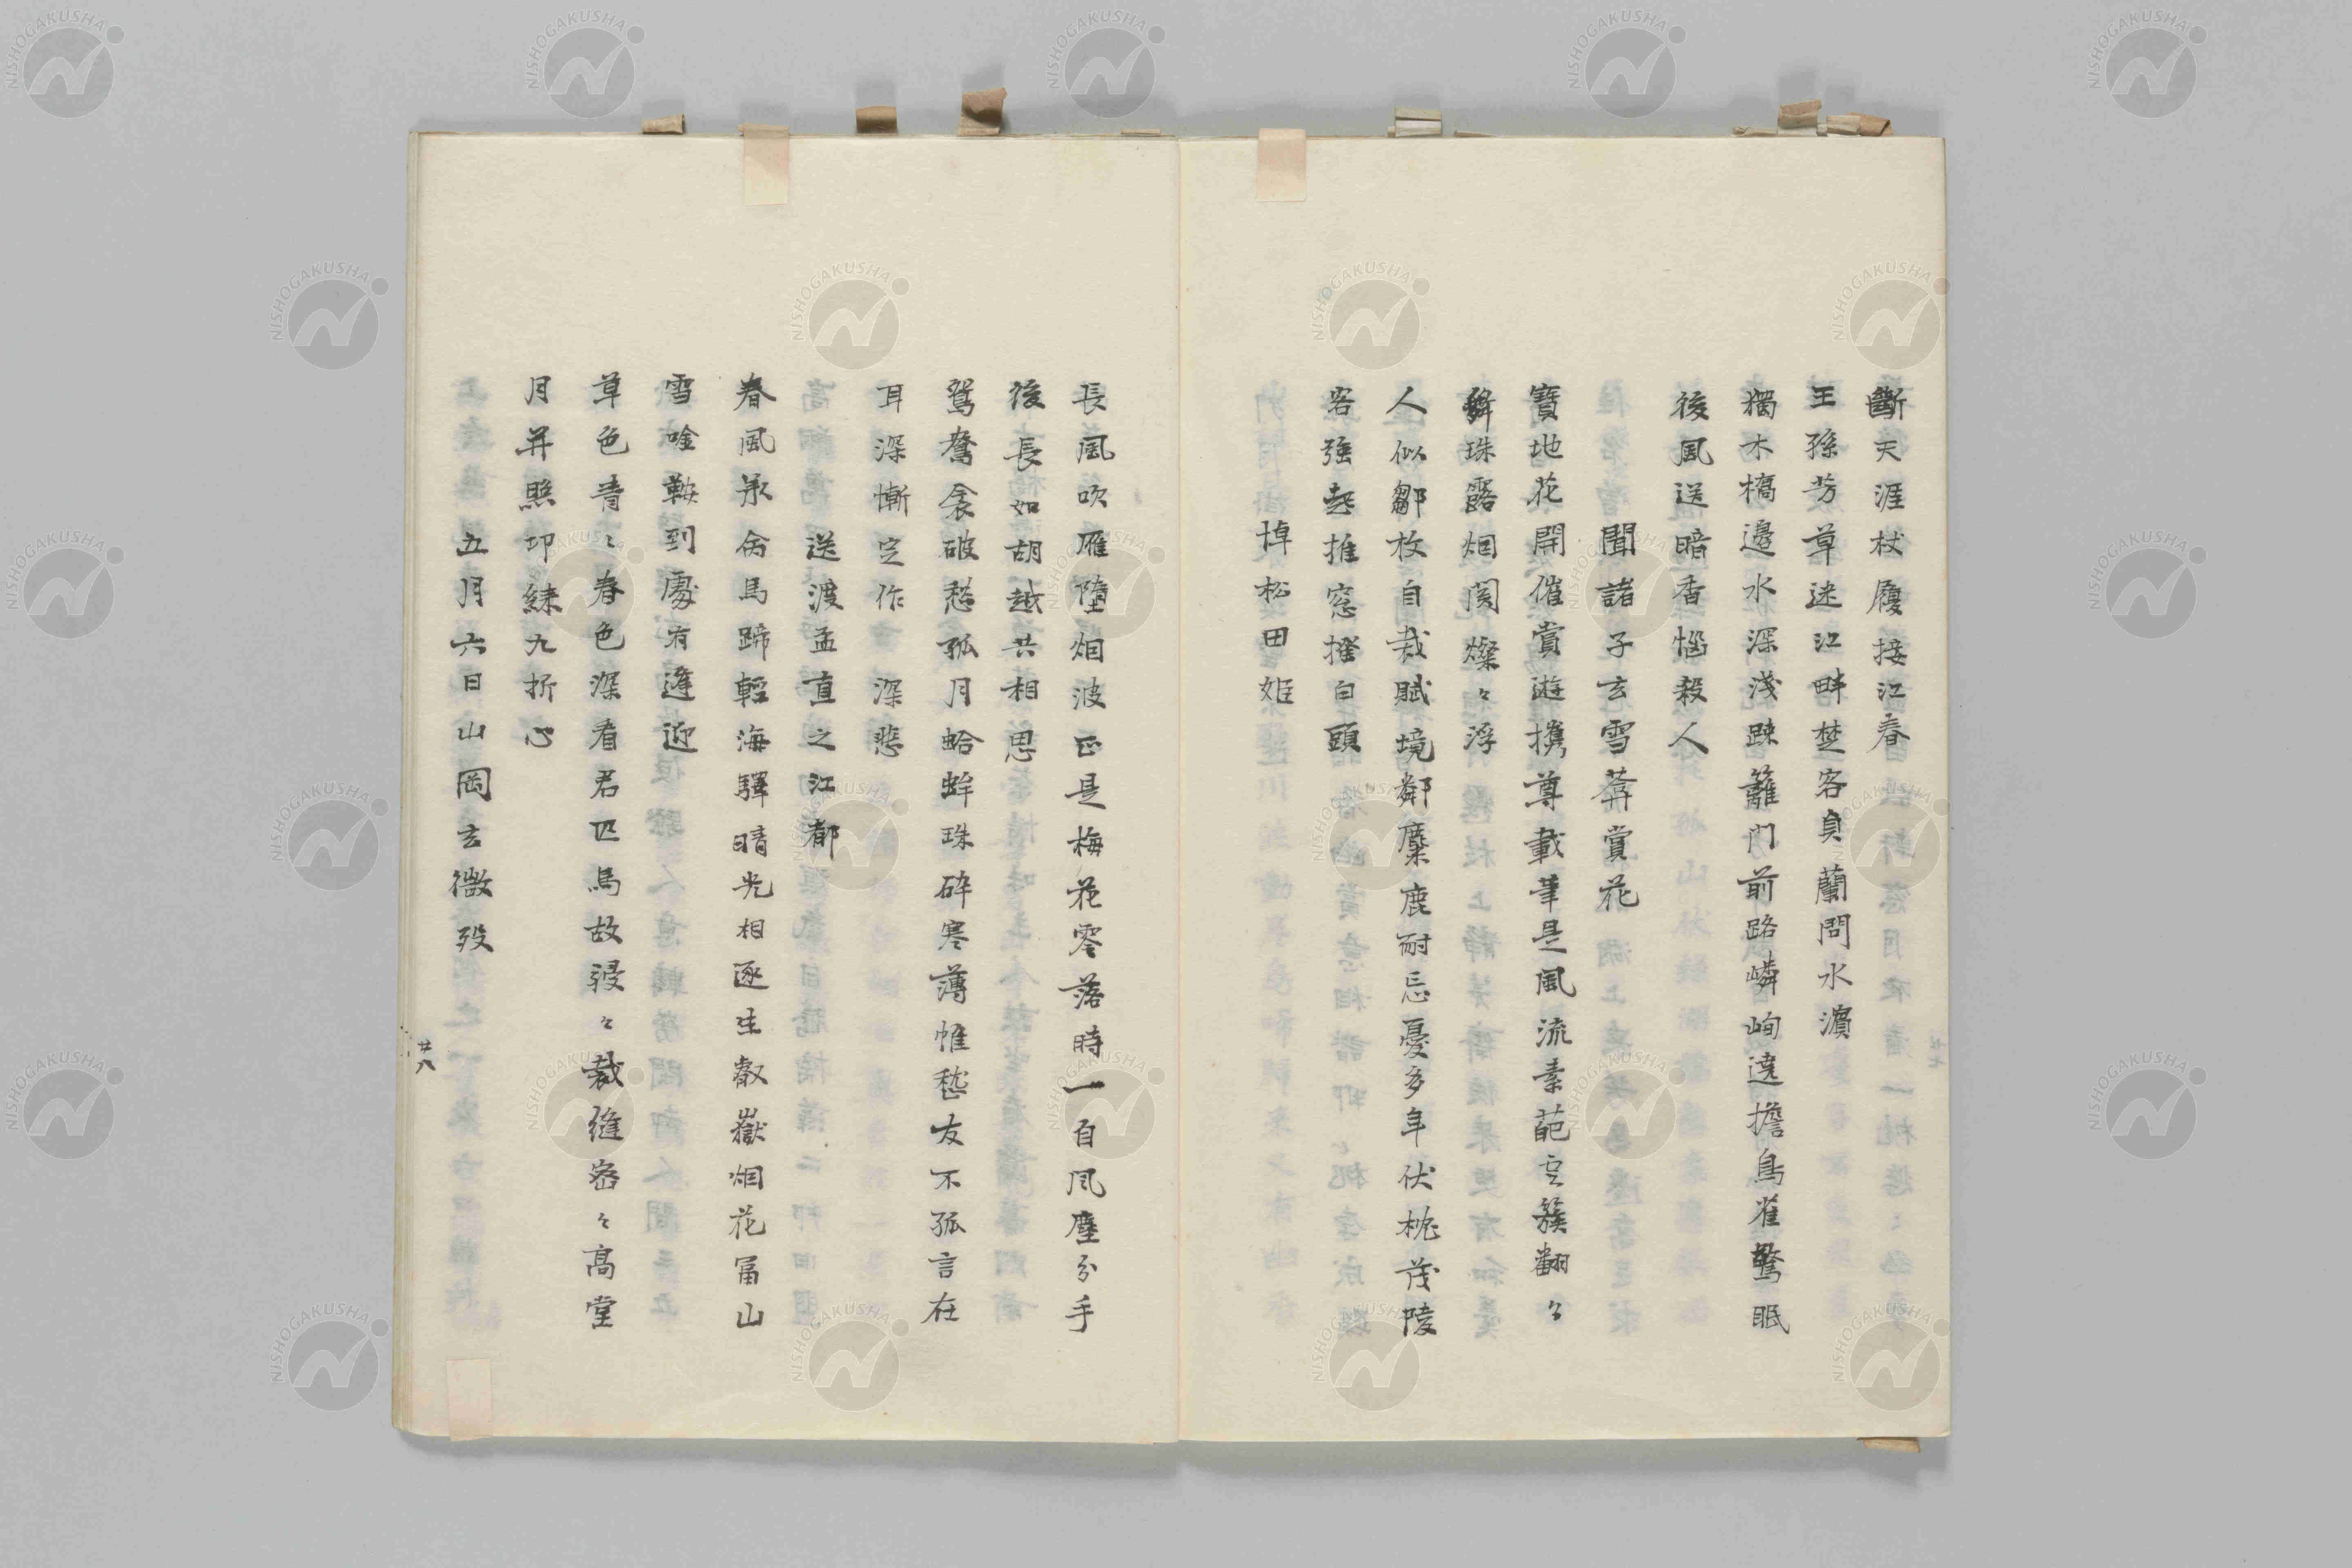 斷天涯杖履接江春
王孫芳草迷江畔楚客臭蘭問水濱
獨木橋邊水深淺疎籬門前路嶙峋遶擔鳥雀驚眠
後風送暗香惱殺人
聞諸子玄雪莽賞花
寶地花開催賞遊攜尊載筆是風流素葩玄簇翻々
舜珠露烟閑燦々浮
人似鄒枚自裁賦境鄰麋鹿耐忘憂多年伏枕茂陵
客強起推窓搔白頭
悼松田姫
長風吹雁墮烟波正是梅花零落時一自風塵分手
後長如胡越共相思
鴛鴦衾破愁孤月蛤蚌珠碎寒薄帷慙友不孤言在
耳深慚定作深悲
送渡孟直之江都
春風承命馬蹄輕海驛晴光相逐生叡嶽烟花冨山
雪唫鞍到處有逢迎
草色青々春色深看君匹馬故駸々裁縫密々高堂
月并照卭線九折心
五月六日山岡玄微歿
廿八
NISHOGAKUSHA